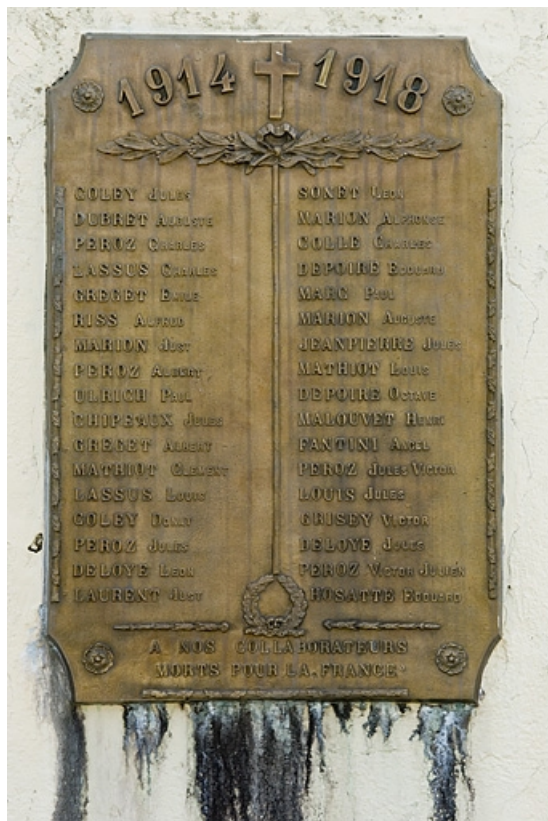 1914 1918
COLEY JULES
DUBRET AUGUSTE
PEROZ CHARLES
LASSUS CHARLES
GREGET EMILE
RISS ALFRED
MARION JUST
PEROZ ALBERT
ULRICH PAUL
CHIPEAUX JULES
GREGET ALBERT
MATHIOT CLEMENT
LASSUS LOUIS
COLEY DONAT
PEROZ JULES
DELOYE LEON
LAURENT JUST
SONET LEON
MARION ALPHONSE
COLLE CHARLES
DEPOIRE EDOUARD
MARC PAUL
MARION AUGUSTE
JEANPIERRE JULES
MATHIOT LOUIS
DEPOIRE OCTAVE
MALOUVET HENRI
FANTINI ANGEL
PEROZ JULES VICTOR
LOUIS JULES
GRISEY VICTOR
DELOYE JULES
PEROZ VICTOR JULIEN
BOSATTE EDOUARD
A NOS COLLABORATEURS
MORTS POUR LA FRANCE